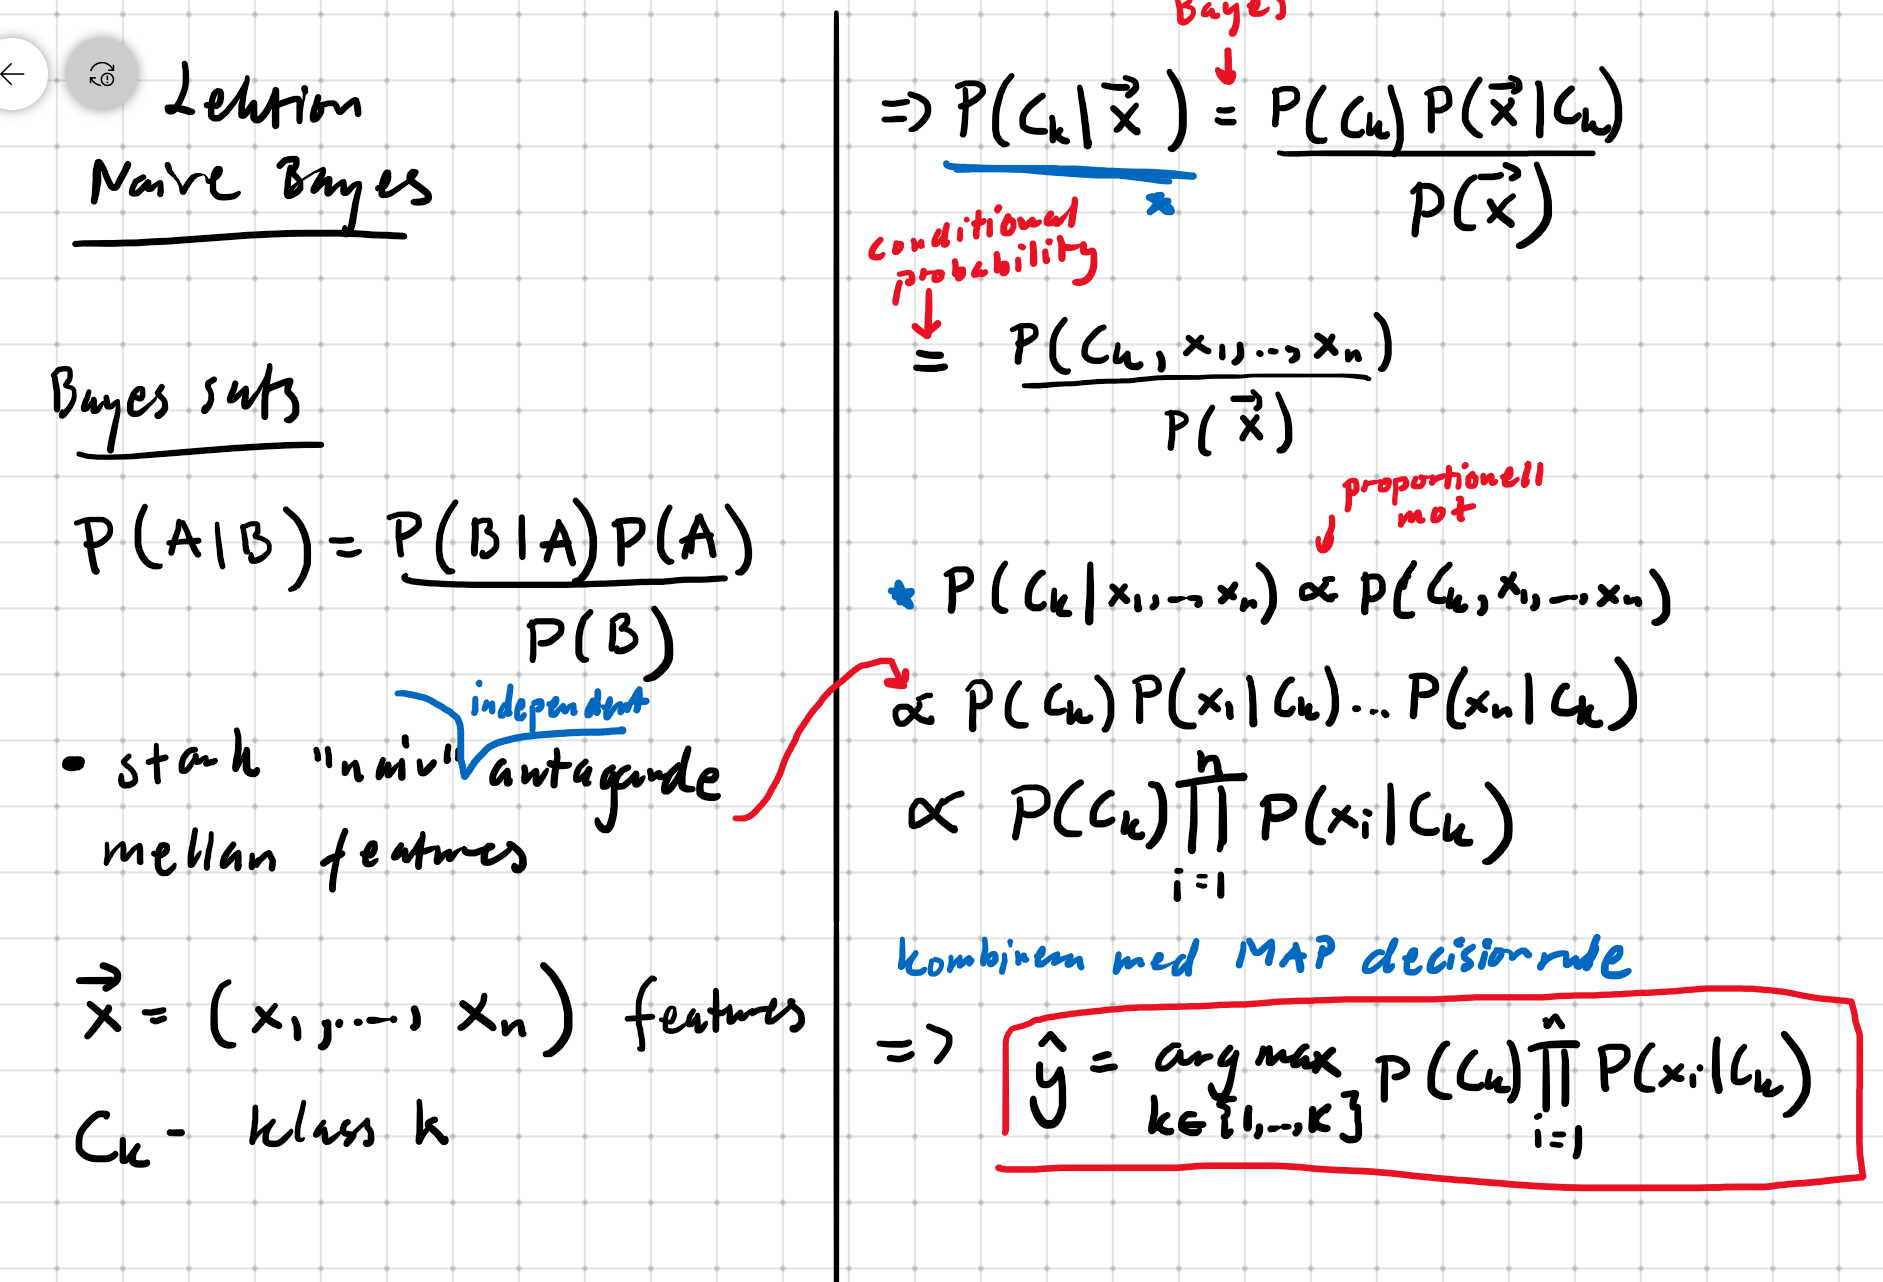 Lektion
Naive Bayes
Bayes sats
P(A|B) = P(B|A)P(A)
P(B)
independent
• stark "naiv" antagande
mellan features
x⃗ = (x₁,...., xₙ) features
Cₖ - klass k
Bayes
=> P(Cₖ|x⃗) = P(Cₖ)P(x⃗|Cₖ)
P(x⃗)
*
conditional
probability
= P(Cₖ, x₁,..., xₙ)
P(x⃗)
proportionell
mot
* P(Cₖ|x₁,..., xₙ) ∝ P(Cₖ, x₁,..., xₙ)
∝ P(Cₖ)P(x₁|Cₖ)... P(xₙ|Cₖ)
n
∝ P(Cₖ)∏P(xᵢ|Cₖ)
i=1
kombinera med MAP decisionrule
n
=> ŷ = arg max P(Cₖ)∏P(xᵢ|Cₖ)
k∈{1,..,K} i=1